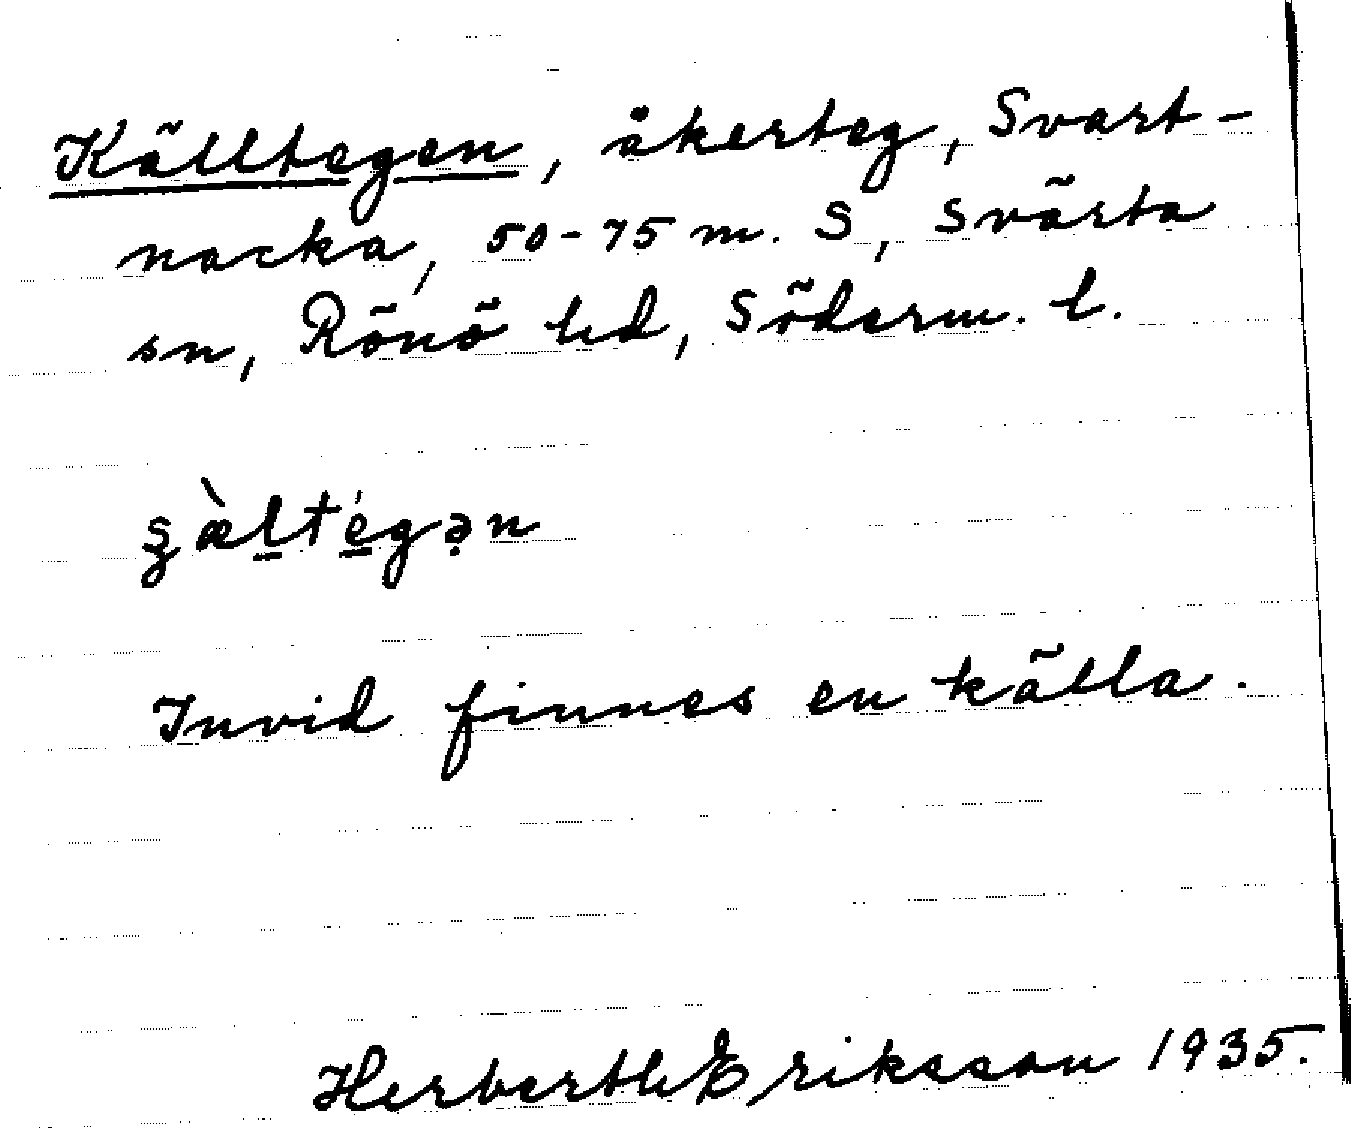 Källtegen, åkerteg, Svart-
nacka, 50-75 m. S, Svärta
sn, Rönö hd, Söderm. l.
Invid finnes en källa.
Herberth Eriksson 1935.